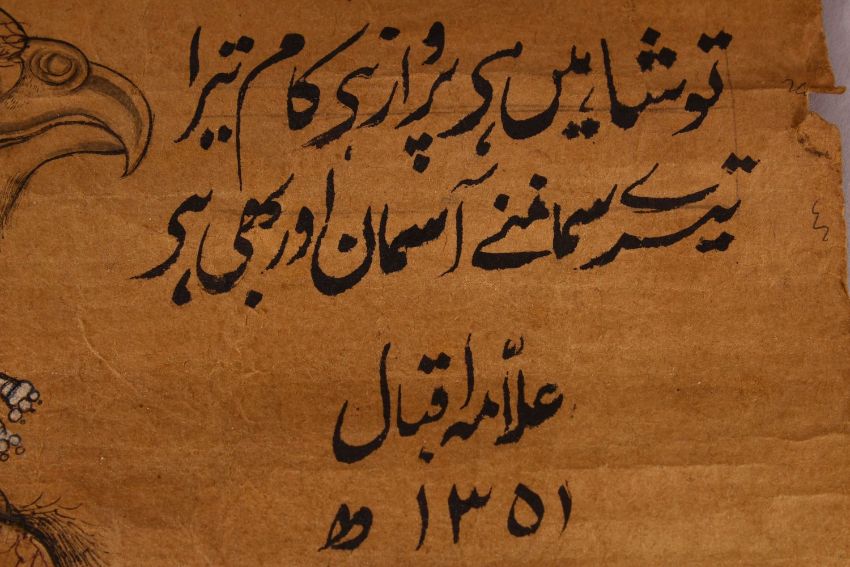 تو شاہیں ہی پرواز ہی کام تیرا
تیرے سامنے آسمان اور بھی ہی
علّامہ اقبال
١٣٥١ ھ